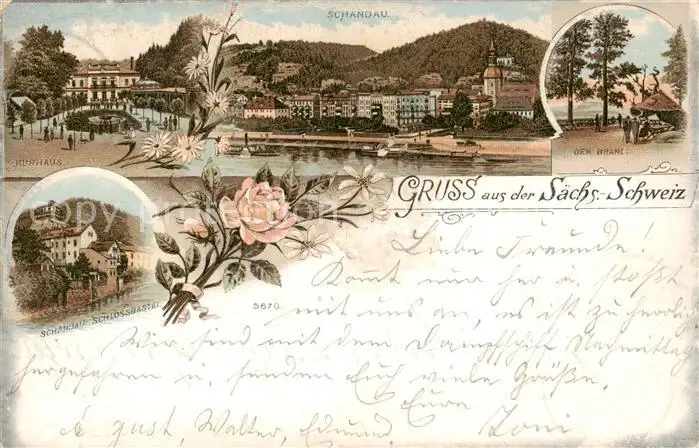 SCHANDAU.
KURHAUS.
DER BRAND.
GRUSS aus der Sächs.-Schweiz
SCHANDAU: SCHLOSSBASTEI
5670
Liebe Freunde!
Kommt nur her u. stoßt
mit uns an, es ist zu herrlig
Wir sind mit dem Dampfschiff Nachmittag
hergefahren u. senden Euch viele Grüße.
Eure
Gust, Walter, Edmund Toni